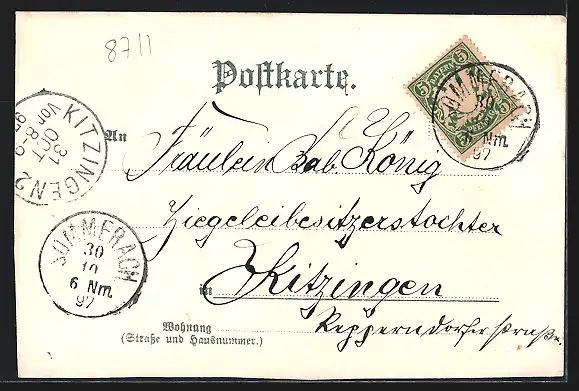 8711
Postkarte.
5 5
BAYERN
5 5
SOMMERACH
30
10
6 Nm.
97
KITZINGEN 2
31
OCT
8-9
Vor
An
Fräulein Bab. König
Ziegeleibesitzerstochter
SOMMERACH
30
10
6 Nm.
97
in Kitzingen
Wohnung Repperndorferstraße.
(Straße und Hausnummer.)